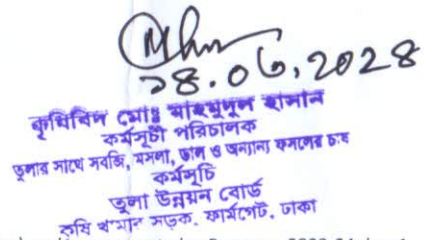 ১৪.০৬.২০২৪
কৃষিবিদ মোঃ মাহমুদুল হাসান
কর্মসূচী পরিচালক
তুলার সাথে সবজি, মসলা, ডাল ও অন্যান্য ফসলের চাষ
কর্মসূচি
তুলা উন্নয়ন বোর্ড
কৃষি খামার সড়ক, ফার্মগেট, ঢাকা